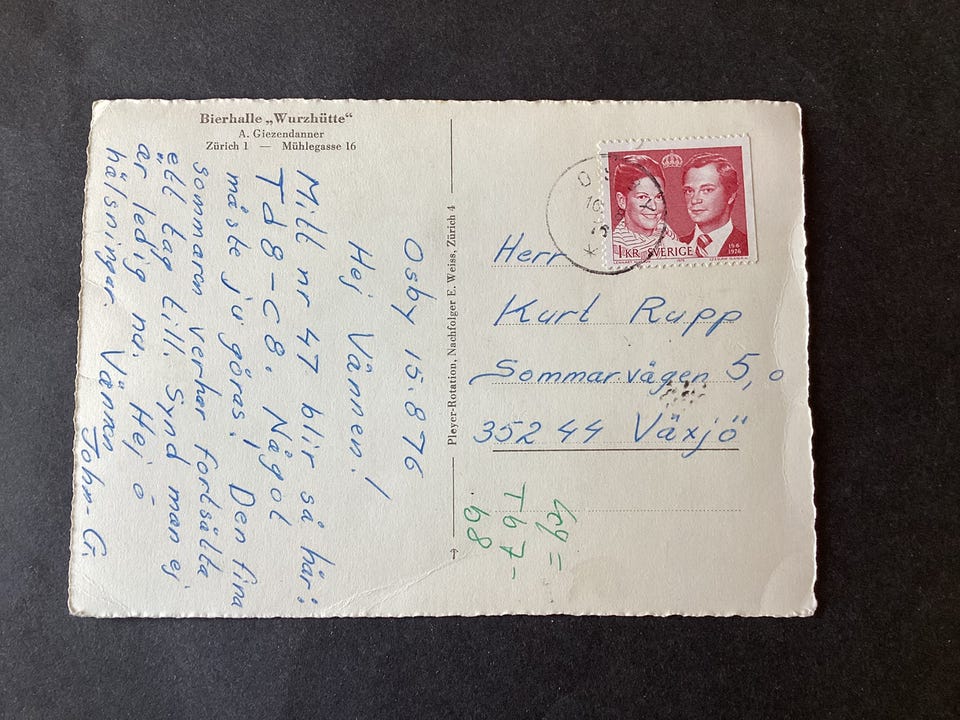 Bierhalle „Wurzhütte"
A. Giezendanner
Zürich 1 — Mühlegasse 16
Osby 15.8 76
Hej Vännen!
Mitt nr 47 blir så här:
Td8-c8. Något
måste ju göras! Den fina
sommaren verkar fortsätta
ett tag till. Synd man ej
är ledig nu. Hej o
hälsningar. Vännen
John-G.
Pleyer-Rotation, Nachfolger E. Weiss, Zürich 4
1 KR SVERIGE
19-6
1976
Herr
Kurt Rupp
Sommarvägen 5,0
352 44 Växjö
Tb7-
b8